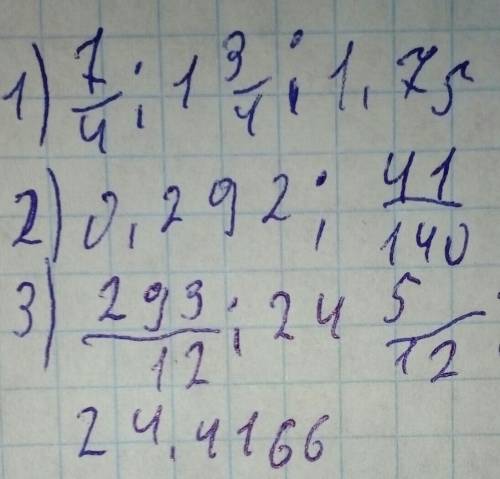 1) 7/4; 1 3/4; 1,75
2) 0,292; 41/140
3) 293/12; 24 5/12;
24,4166